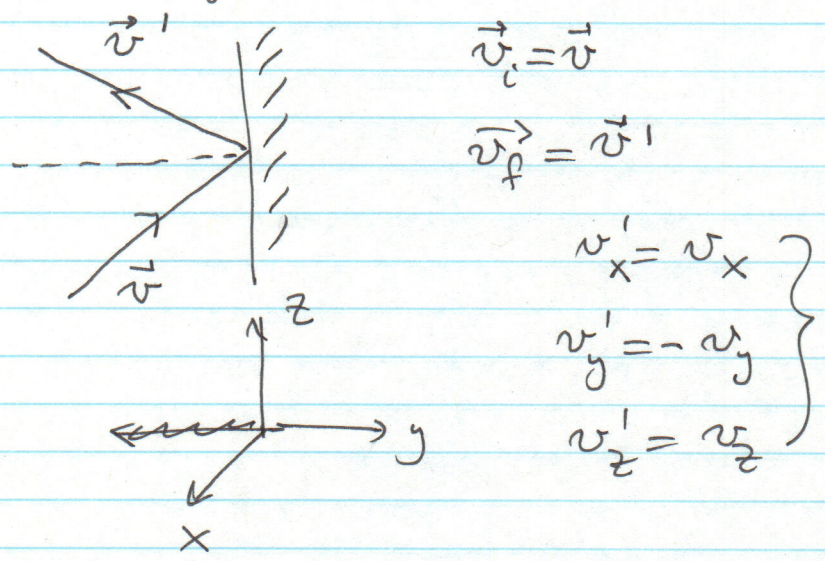 v⃗ '
v⃗
z
y
x
v⃗ᵢ = v⃗
v⃗_f = v⃗ '
v'ₓ = vₓ
v'_y = - v_y
v'_z = v_z